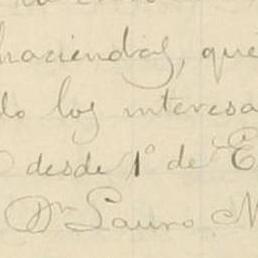 haciendas, que
do los interesa
desde 1º de E
Dn Lauro M